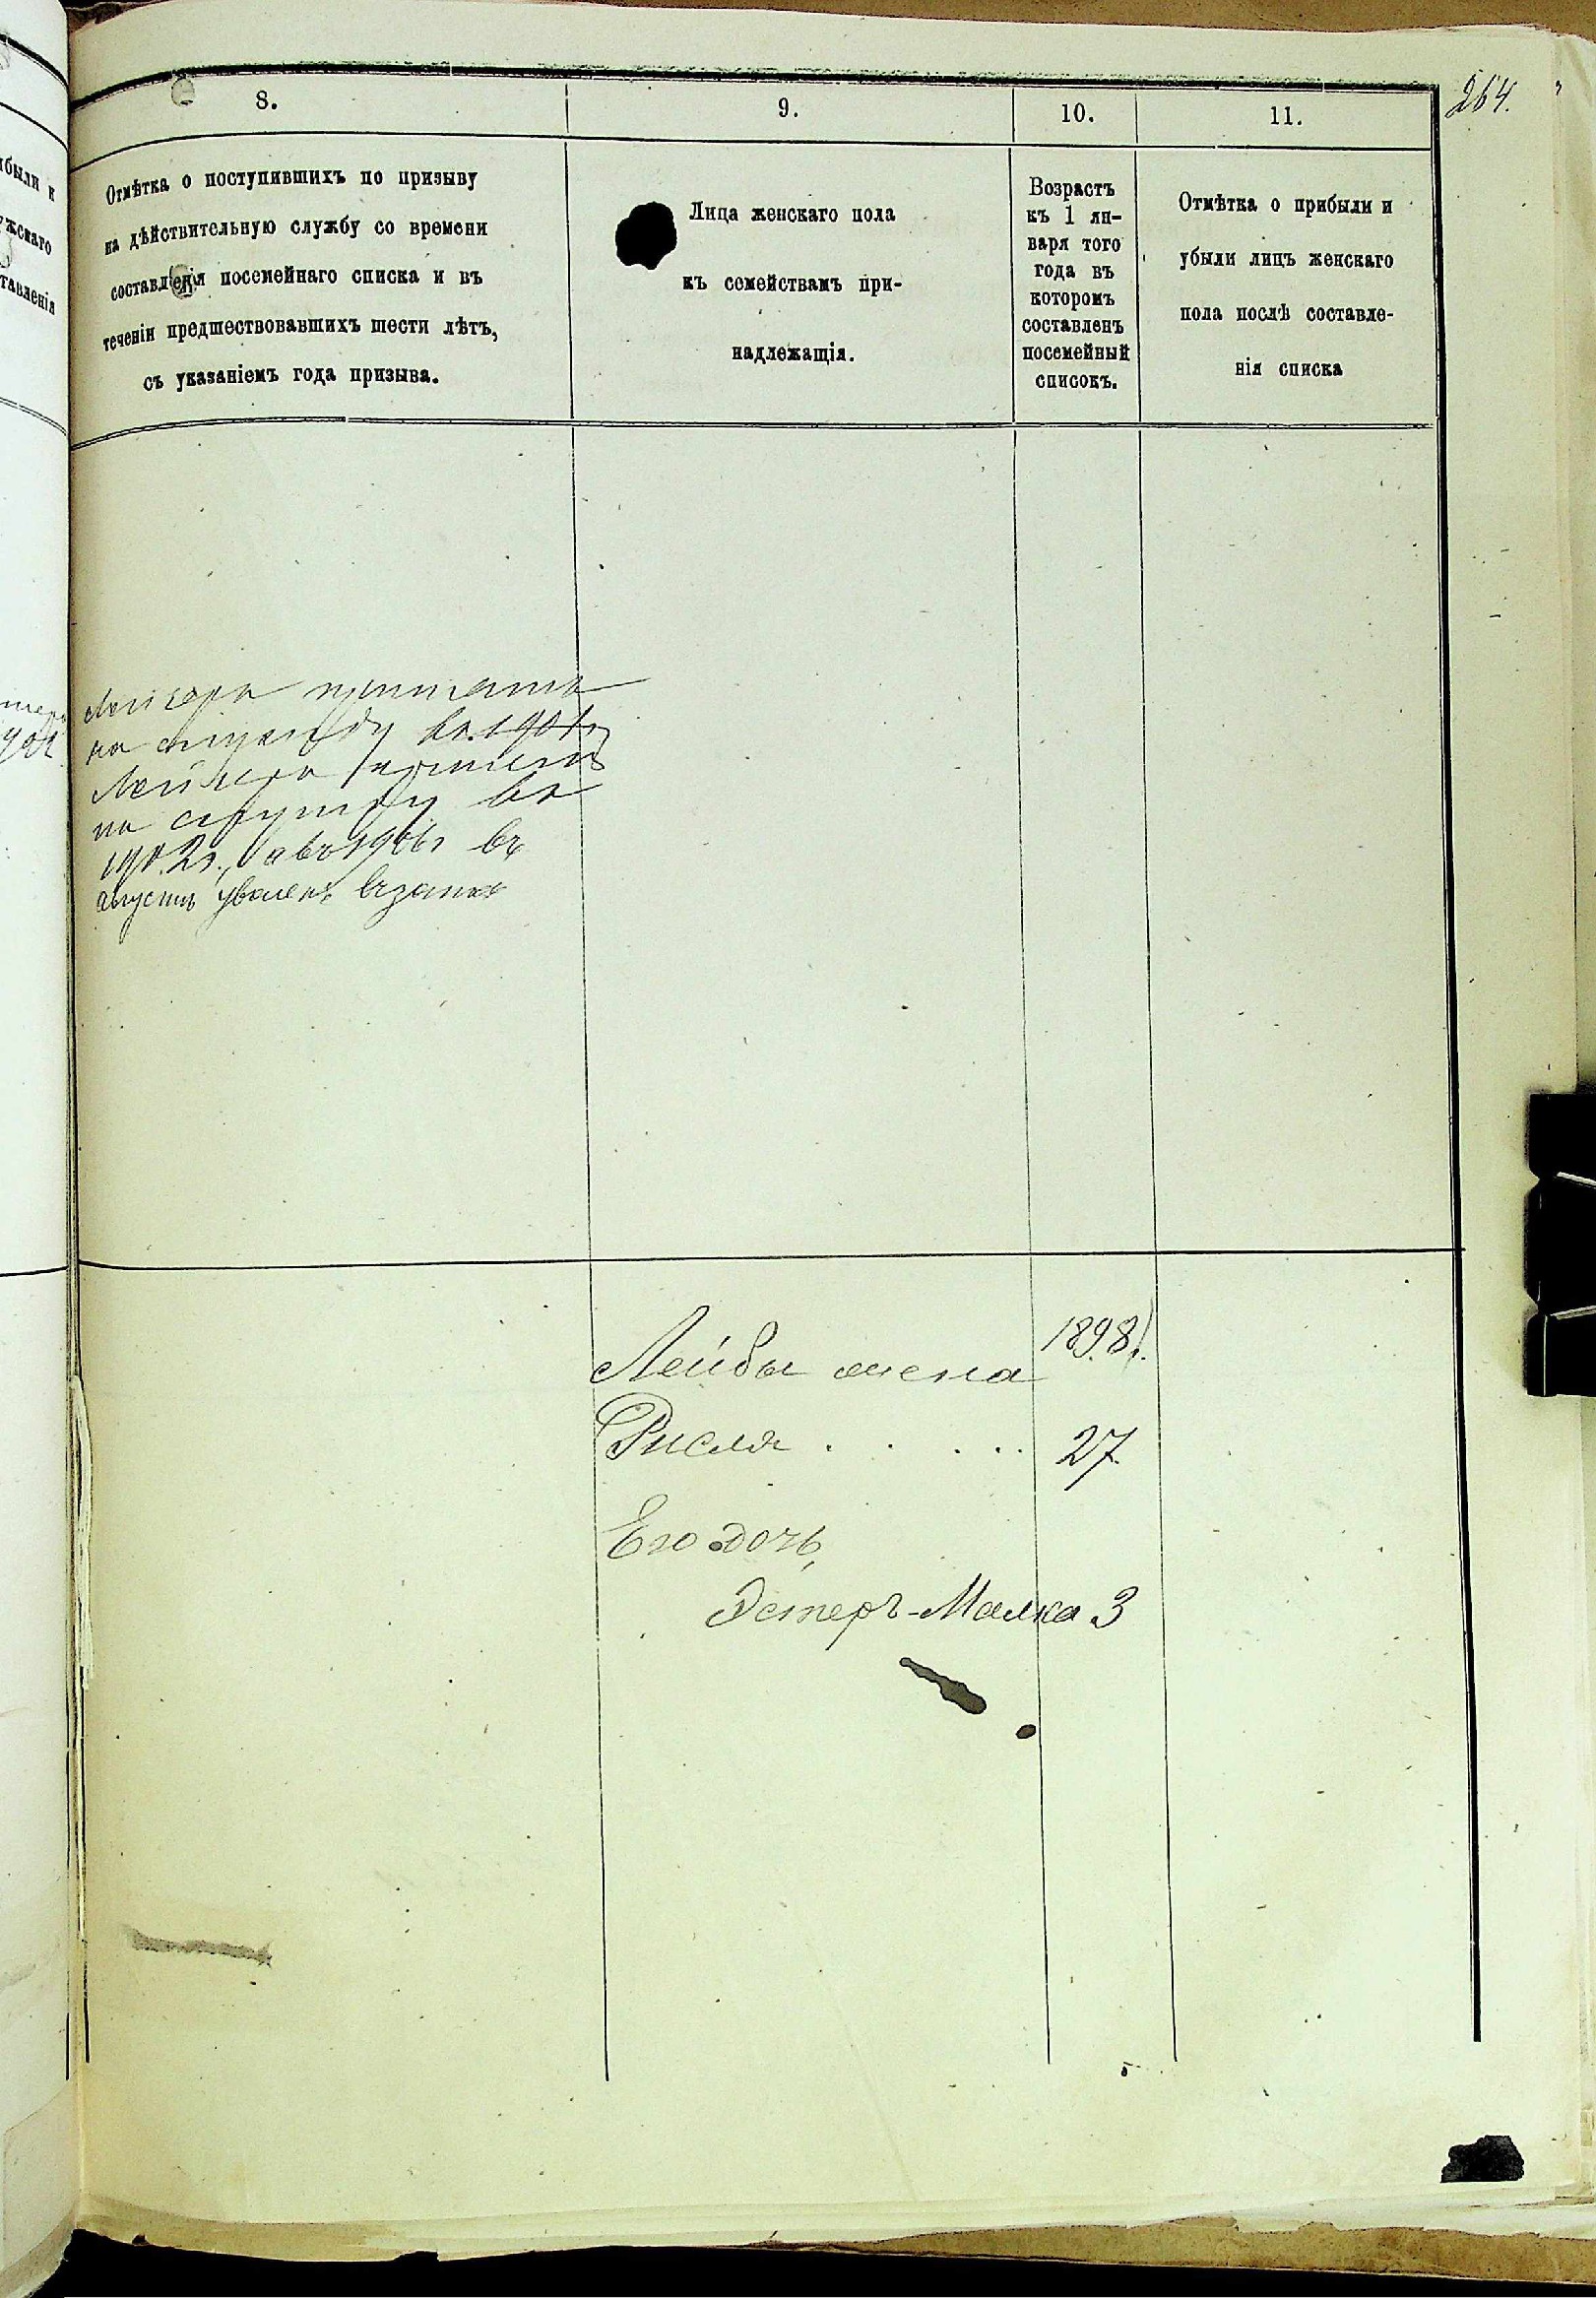 264.
8.
9.
10.
11.
Отмѣтка о поступившихъ по призыву
на дѣйствительную службу со времени
составленія посемейнаго списка и въ
теченіи предшествовавшихъ шести лѣтъ,
съ указаніемъ года призыва.
Лица женскаго пола
къ семействамъ при-
надлежащія.
Возрастъ
къ 1 ян-
варя того
года въ
которомъ
составленъ
посемейный
списокъ.
Отмѣтка о прибыли и
убыли лицъ женскаго
пола послѣ составле-
нія списка
на службу въ 1901г
на службу въ
1902г., а въ 1906г въ
августѣ уволенъ въ запас
1898г.
Лейбы жена
Рисля . . . . 27
Его дочь,
Эстеръ-Малка 3